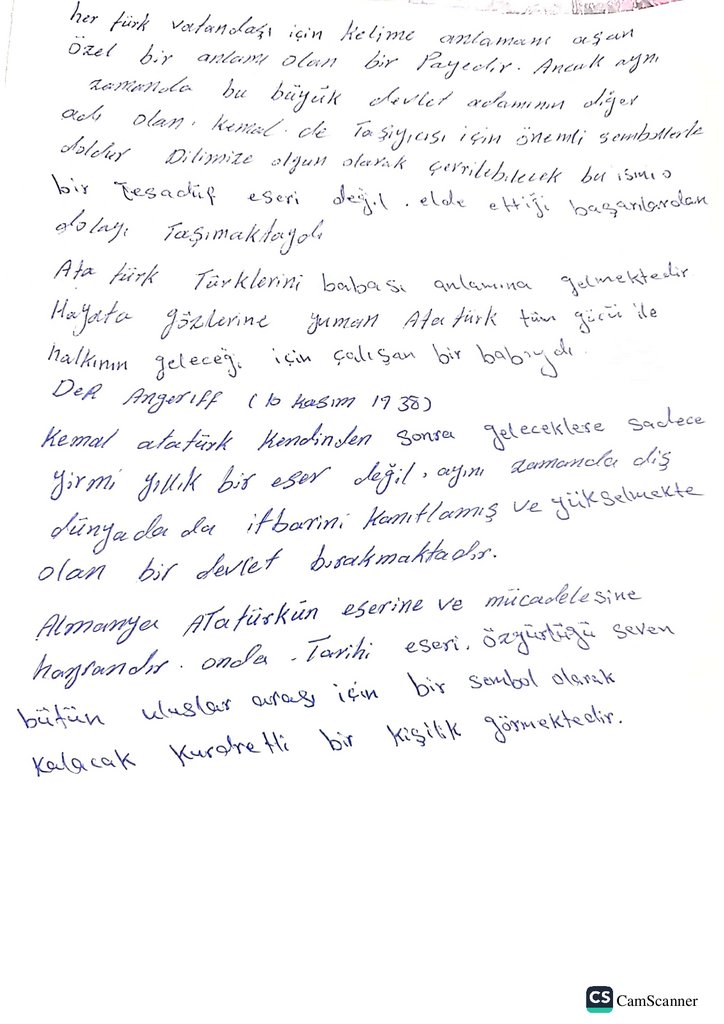 her türk vatandaşı için kelime anlamanı aşan
Özel bir anlamı olan bir Payedir. Ancak aynı
zamanda bu büyük devlet adamının diğer
adı olan. Kemal. de Taşiyıcısı için önemli sembollerle
doldur Dilimize olgun olarak çevrilebilecek bu ismi o
bir Tesadüf eseri değil. elde ettiği başarılardan
dolayı Taşımaktaydı
Ata türk Türklerini babası anlamına gelmektedir
Hayata gözlerine yuman Atatürk tüm gücü ile
halkının geleceği için çalışan bir babıydı.
DeR Angeriff (10 kasım 1938)
Kemal atatürk Kendinden sonra geleceklere sadece
yirmi yıllık bir eser değil, ayını zamanda diş
dünyada da itbarini kanıtlamış ve yükselmekte
olan bir devlet bırakmaktadır.
Almanya Atatürkün eserine ve mücadelesine
hayrandır. onda. Tarihi eseri. Özgürlüğü seven
bütün uluslar arası için bir sembol olarak
kalacak Kurdretli bir kişilik görmektedir.
CS CamScanner